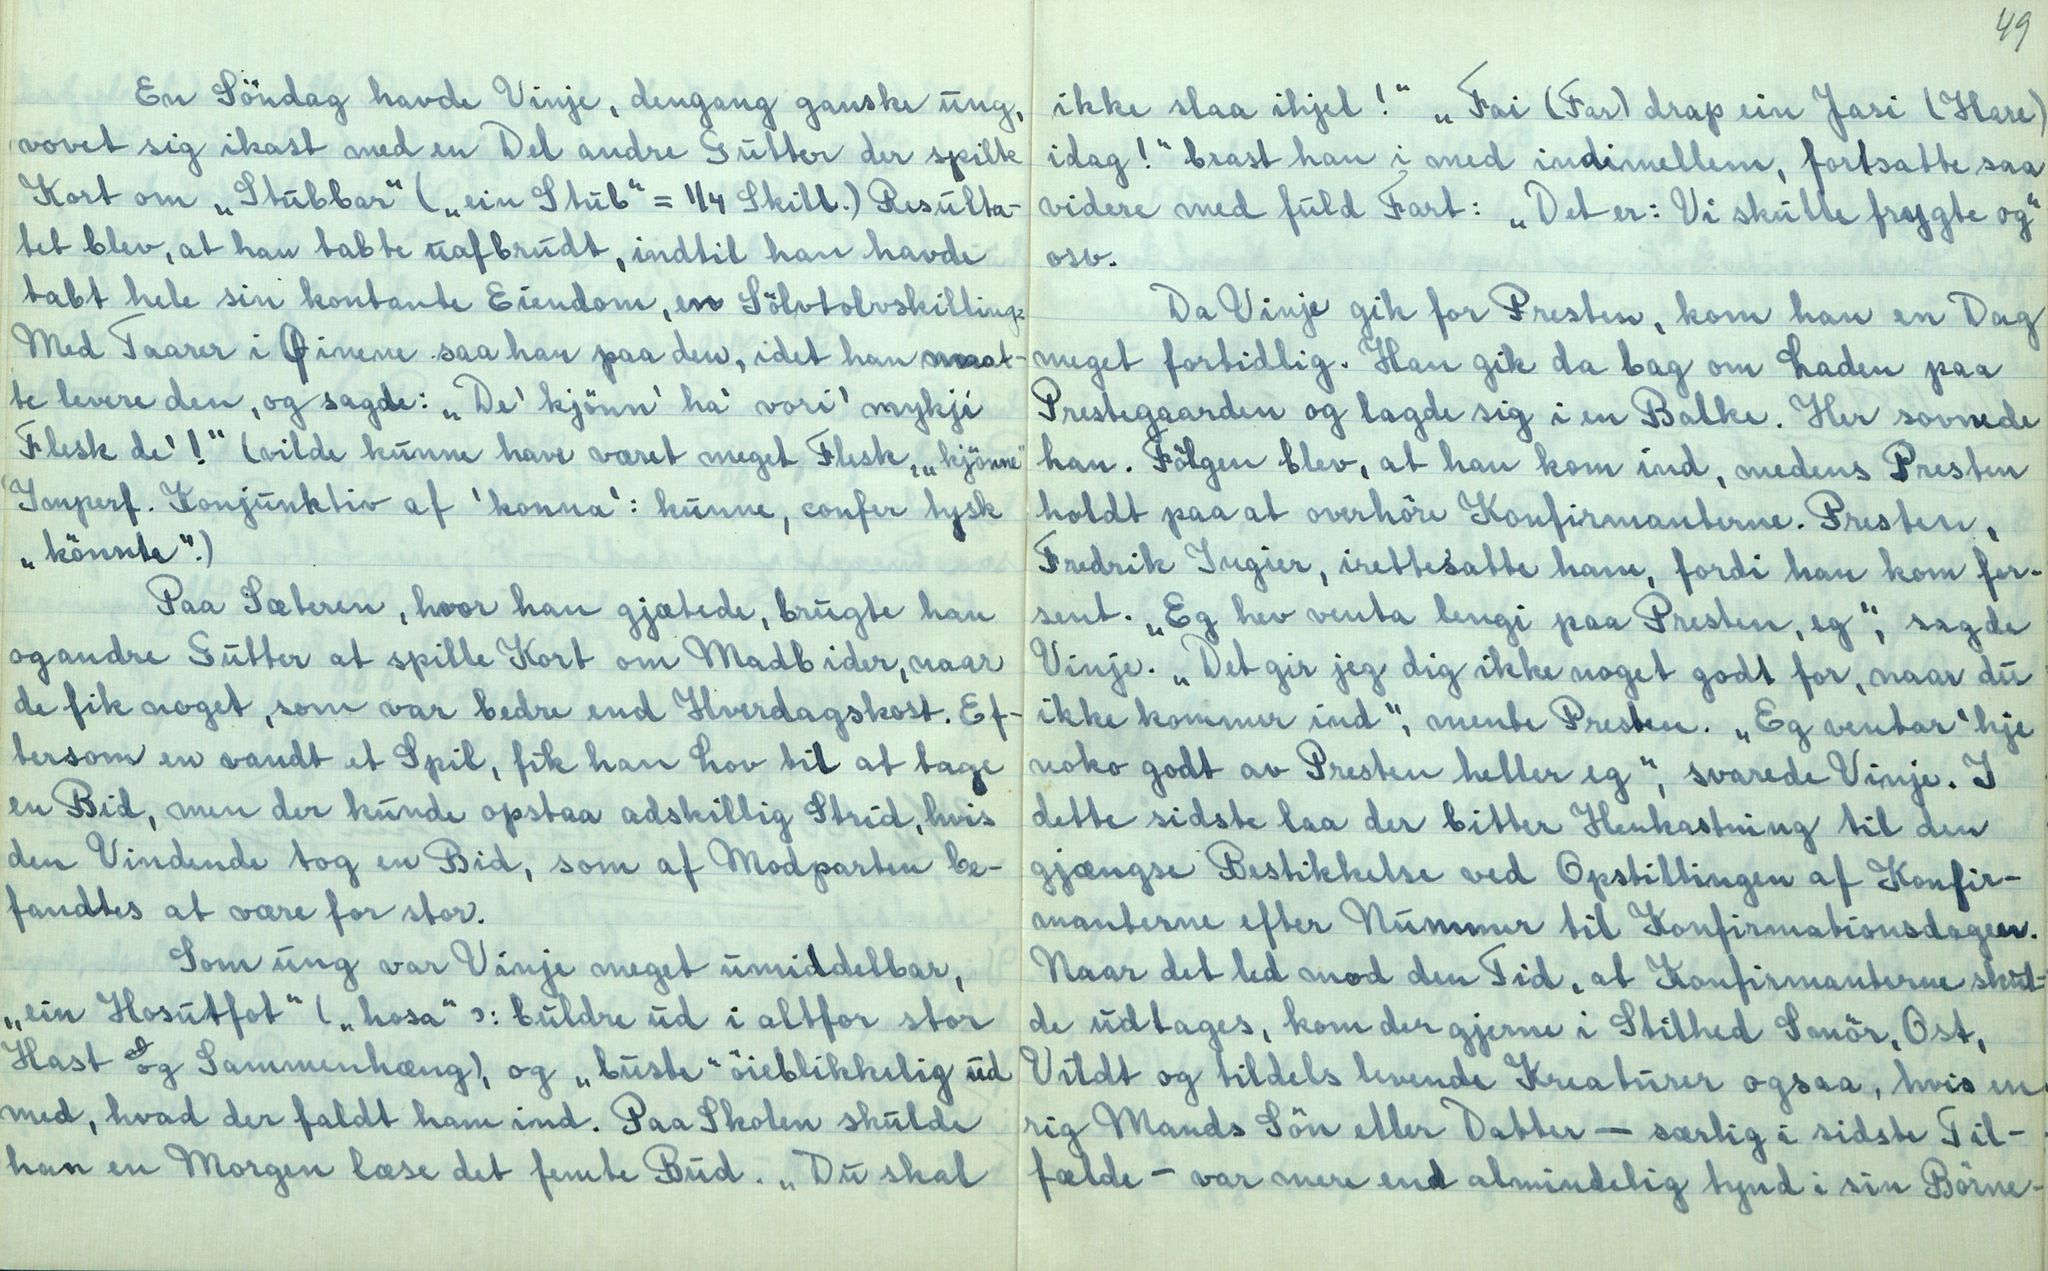 En Söndag havde Vinje, dengang ganske ung,
vovet sig ikast med en Del andre Gutter der spilte
Kort om „Stubbar“ („ein Stub“ = 1/4 Skill.) Resulta-
tet blev, at han tabte uafbrudt, indtil han havde
tabt hele sin kontante Eiendom, en Sölvtolvskilling.
Med Taarer i Øinene saa han paa den, idet han maat-
te levere den, og sagde: „De' kjönn' ha' vori' mykji
Flesk de'!“ (vilde kunne have været meget Flesk, „kjönne“
Imperf. Konjunktiv af 'konna': kunne, confer tysk
„könnte“.)
Paa Sæteren, hvor han gjætede, brugte han
og andre Gutter at spille Kort om Madbider, naar
de fik noget, som var bedre end Hverdagskost. Ef-
tersom en vandt et Spil, fik han Lov til at tage
en Bid, men der kunde opstaa adskillig Strid, hvis
den Vindende tog en Bid, som af Modparten be-
fandtes at være for stor.
Som ung var Vinje meget umiddelbar,
„ein Hosutfot“ („hosa“ ɔ: buldre ud i altfor stor
Hast og Sammenhæng), og „buste“ öieblikkelig ud
med, hvad der faldt ham ind. Paa Skolen skulde
han en Morgen læse det femte Bud. „Du skal
49
ikke slaa ihjel!“ „Fai (Far) drap ein Jasi (Hare)
idag!“ brast han i med indimellem, fortsatte saa
videre med fuld Fart: „Det er: Vi skulle frygte og“
osv.
Da Vinje gik for Presten, kom han en Dag
meget fortidlig. Han gik da bag om Laden paa
Prestegaarden og lagde sig i en Balke. Her sovnede
han. Fölgen blev, at han kom ind, medens Presten
holdt paa at overhöre Konfirmanterne. Presten,
Fredrik Ingier, irettesatte ham, fordi han kom for-
sent. „Eg hev venta lengi paa Presten, eg“, sagde
Vinje. „Det gir jeg dig ikke noget godt for, naar du
ikke kommer ind“, mente Presten. „Eg ventar 'kje
noko godt av Presten heller eg“, svarede Vinje. I
dette sidste laa der bitter Henkastning til den
gjængse Bestikkelse ved Opstillingen af Konfir-
manterne efter Nummer til Konfirmationsdagen.
Naar det led mod den Tid, at Konfirmanterne skul-
de udtages, kom der gjerne i Stilhed Smör, Ost,
Vildt og tildels levende Kreaturer ogsaa, hvis en
rig Mands Sön eller Datter – særlig i sidste Til-
fælde – var mere end almindelig tynd i sin Börne-